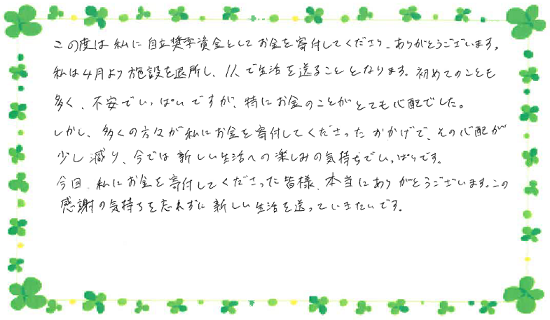 この度は私に自立奨学資金としてお金を寄付してくださり、ありがとうございます。
私は4月より施設を退所し、1人で生活を送ることとなります。初めてのことも
多く、不安でいっぱいですが、特にお金のことがとても心配でした。
しかし、多くの方々が私にお金を寄付してくださったおかげで、その心配が
少し減り、今では新しい生活への楽しみの気持ちでいっぱいです。
今回、私にお金を寄付してくださった皆様、本当にありがとうございます。この
感謝の気持ちを忘れずに新しい生活を送っていきたいです。